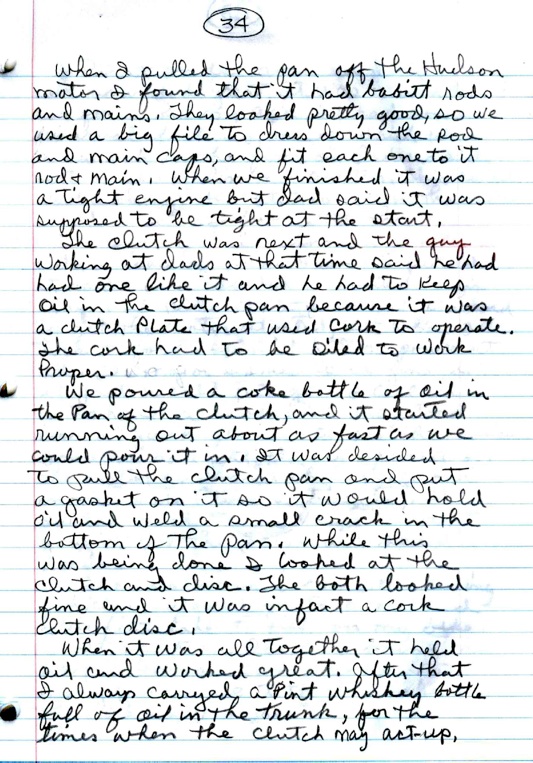 34
When I pulled the pan off the Hudson
motor I found that it had babitt rods
and mains. They looked pretty good, so we
used a big file to dress down the rod
and main caps, and fit each one to it
rod + main. When we finished it was
a tight engine but dad said it was
supposed to be tight at the start.
The clutch was next and the guy
working at dads at that time said he had
had one like it and he had to keep
oil in the clutch pan because it was
a clutch Plate that used cork to operate.
The cork had to be oiled to work
Proper.
We poured a coke bottle of oil in
the Pan of the clutch, and it started
running out about as fast as we
could pour it in. It was desided
to pull the clutch pan and put
a gasket on it so it would hold
oil and weld a small crack in the
bottom of The pan. While this
was being done I looked at the
clutch and disc. The both looked
fine and it was infact a cork
clutch disc.
When it was all Together it held
oil and worked great. After that
I always carryed a Pint whiskey bottle
full of oil in the trunk, for the
times when the clutch may act-up.